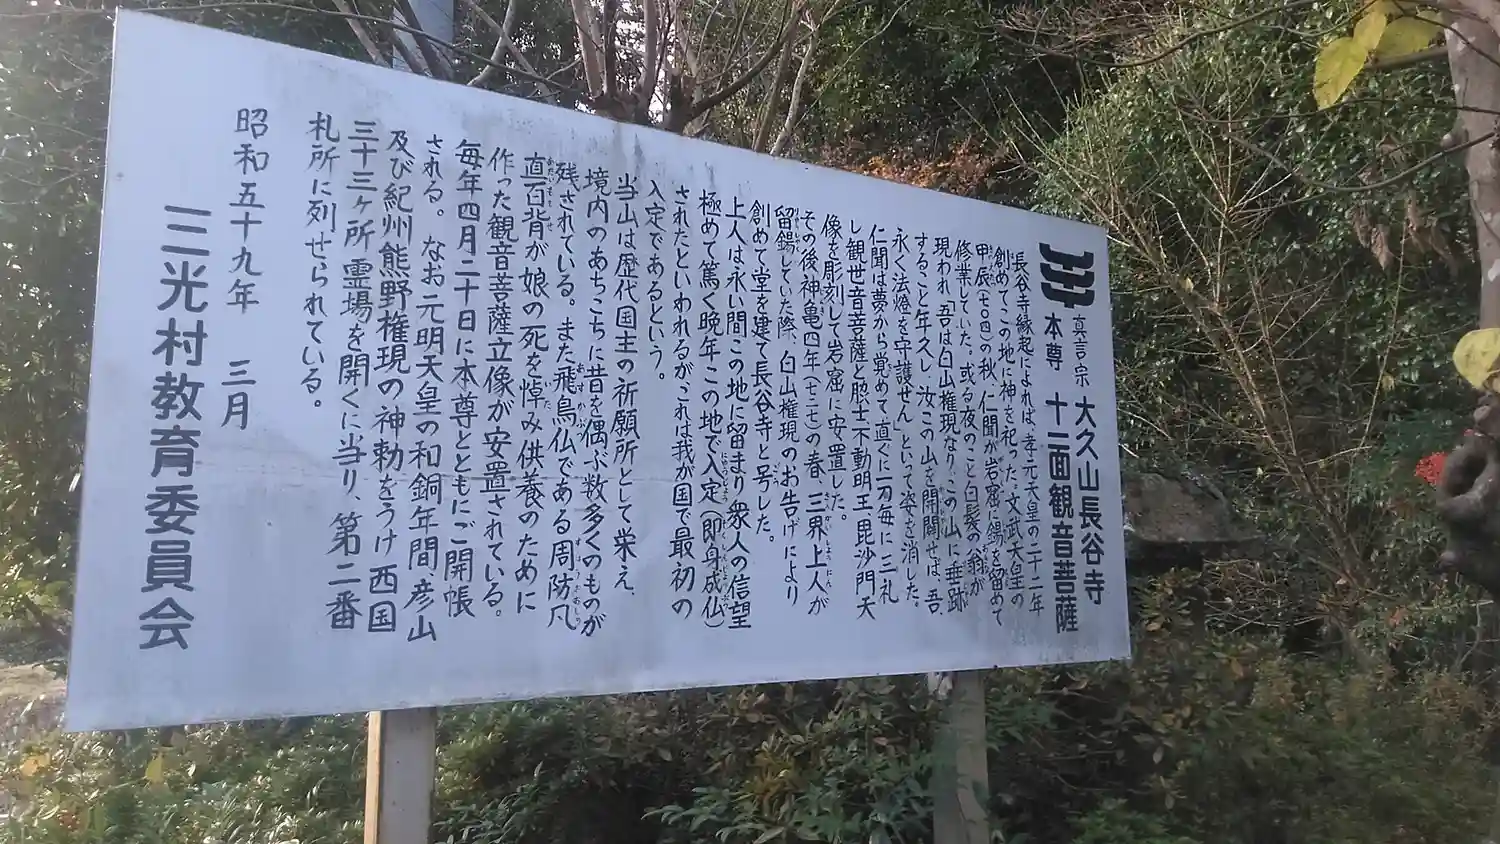 真言宗 大久山長谷寺
本尊 十一面観音菩薩
長谷寺縁起によれば、孝元天皇の二十二年
創めてこの地に神を祀った。文武天皇の
甲辰(七〇四)の秋、仁聞が岩窟に錫を留めて
修業していた。或る夜のこと白髪の翁が
現われ「吾は白山権現なり、この山に垂跡
すること年久し、汝この山を開闢せば、吾、
永く法燈を守護せん」といって姿を消した。
仁聞は夢から覚めて直ぐに一刀毎に三礼
し観世音菩薩と脇士不動明王毘沙門天
像を彫刻して岩窟に安置した。
その後神亀四年(七二七)の春、三界上人が
留錫していた際、白山権現のお告げにより
創めて堂を建て長谷寺と号した。
上人は永い間この地に留まり衆人の信望
極めて篤く晩年この地で入定(即身成仏)
されたといわれるがこれは我が国で最初の
入定であるという。
当山は歴代国主の祈願所として栄え、
境内のあちこちに昔を偲ぶ数多くのものが
残されている。また飛鳥仏である周防凡
直百背が娘の死を悼み供養のために
作った観音菩薩立像が安置されている。
毎年四月二十日に本尊とともにご開帳
される。なお元明天皇の和銅年間彦山
及び紀州熊野権現の神勅をうけ西国
三十三ヶ所霊場を開くに当り、第二番
札所に列せられている。
昭和五十九年 三月
三光村教育委員会